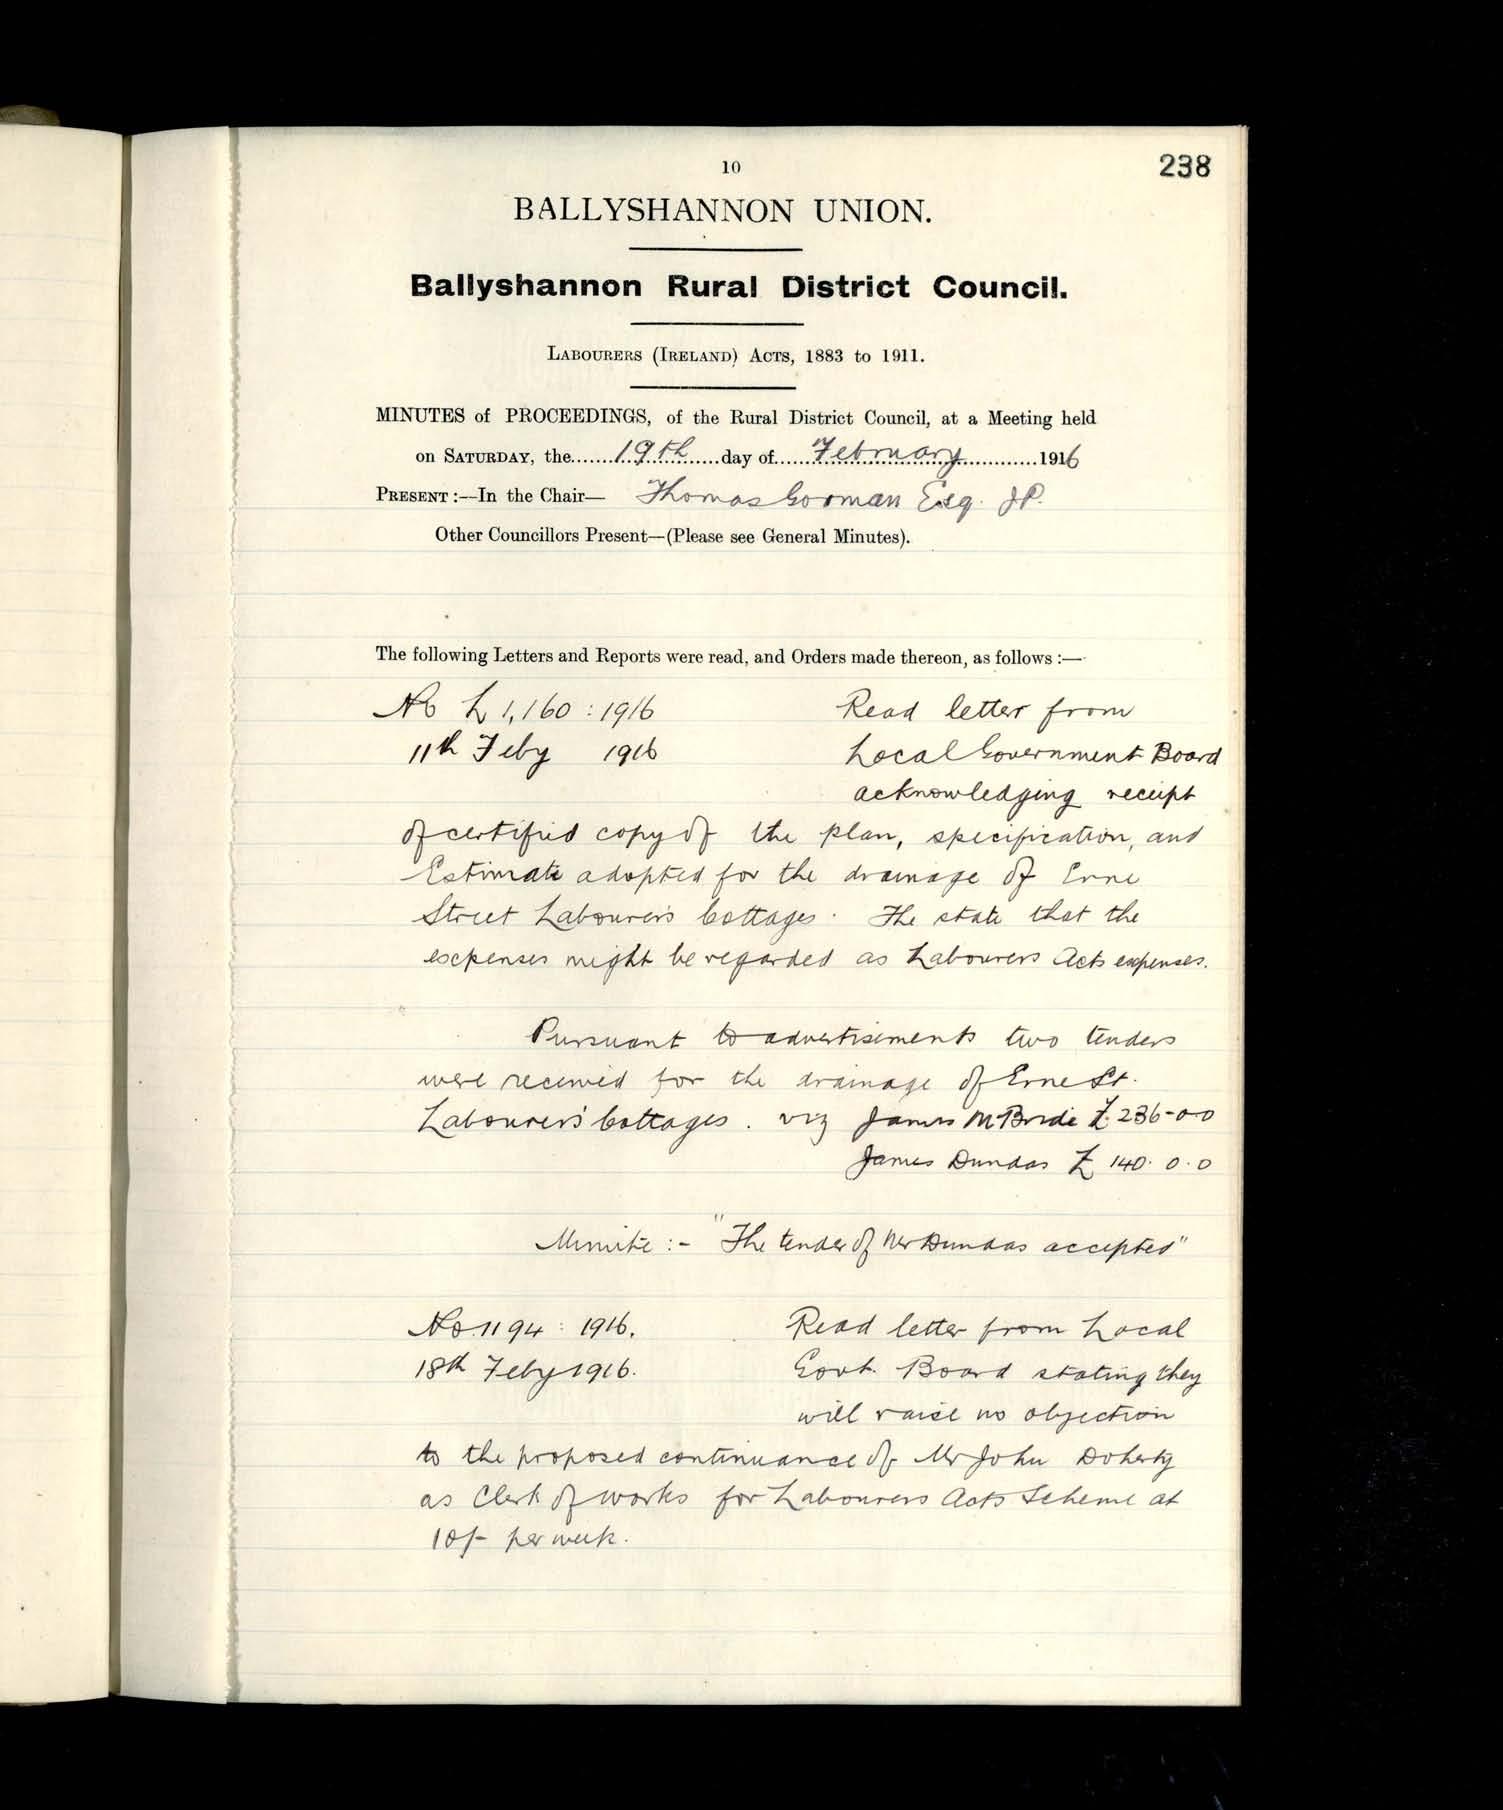 10
238
BALLYSHANNON UNION.
Ballyshannon Rural District Council.
LABOURERS (IRELAND) ACTS, 1883 to 1911.
MINUTES of PROCEEDINGS, of the Rural District Council, at a Meeting held
on SATURDAY, the.......19th.......day of......February.............1916
PRESENT :—In the Chair— Thomas Gorman Esq. J.P.
Other Councillors Present—(Please see General Minutes).
The following Letters and Reports were read, and Orders made thereon, as follows :—
No L 1,160 : 1916 Read letter from
11th Feby 1916 Local Government Board
acknowledging receipt
of certified copy of the plan, specification, and
Estimate adopted for the drainage of Erne
Street Labourers Cottages. The state that the
expenses might be regarded as Labourers Acts expenses.
Pursuant to advertisements two tenders
were received for the drainage of Erne St.
Labourers' Cottages. viz James McBride £236-0-0
James Dundas £ 140. 0. 0
Minute :- "The tender of Mr Dundas accepted"
No. 1194 : 1916. Read letter from Local
18th Feby 1916. Govt. Board stating they
will raise no objection
to the proposed continuance of Mr John Doherty
as Clerk of works for Labourers Acts Scheme at
10/- per week.